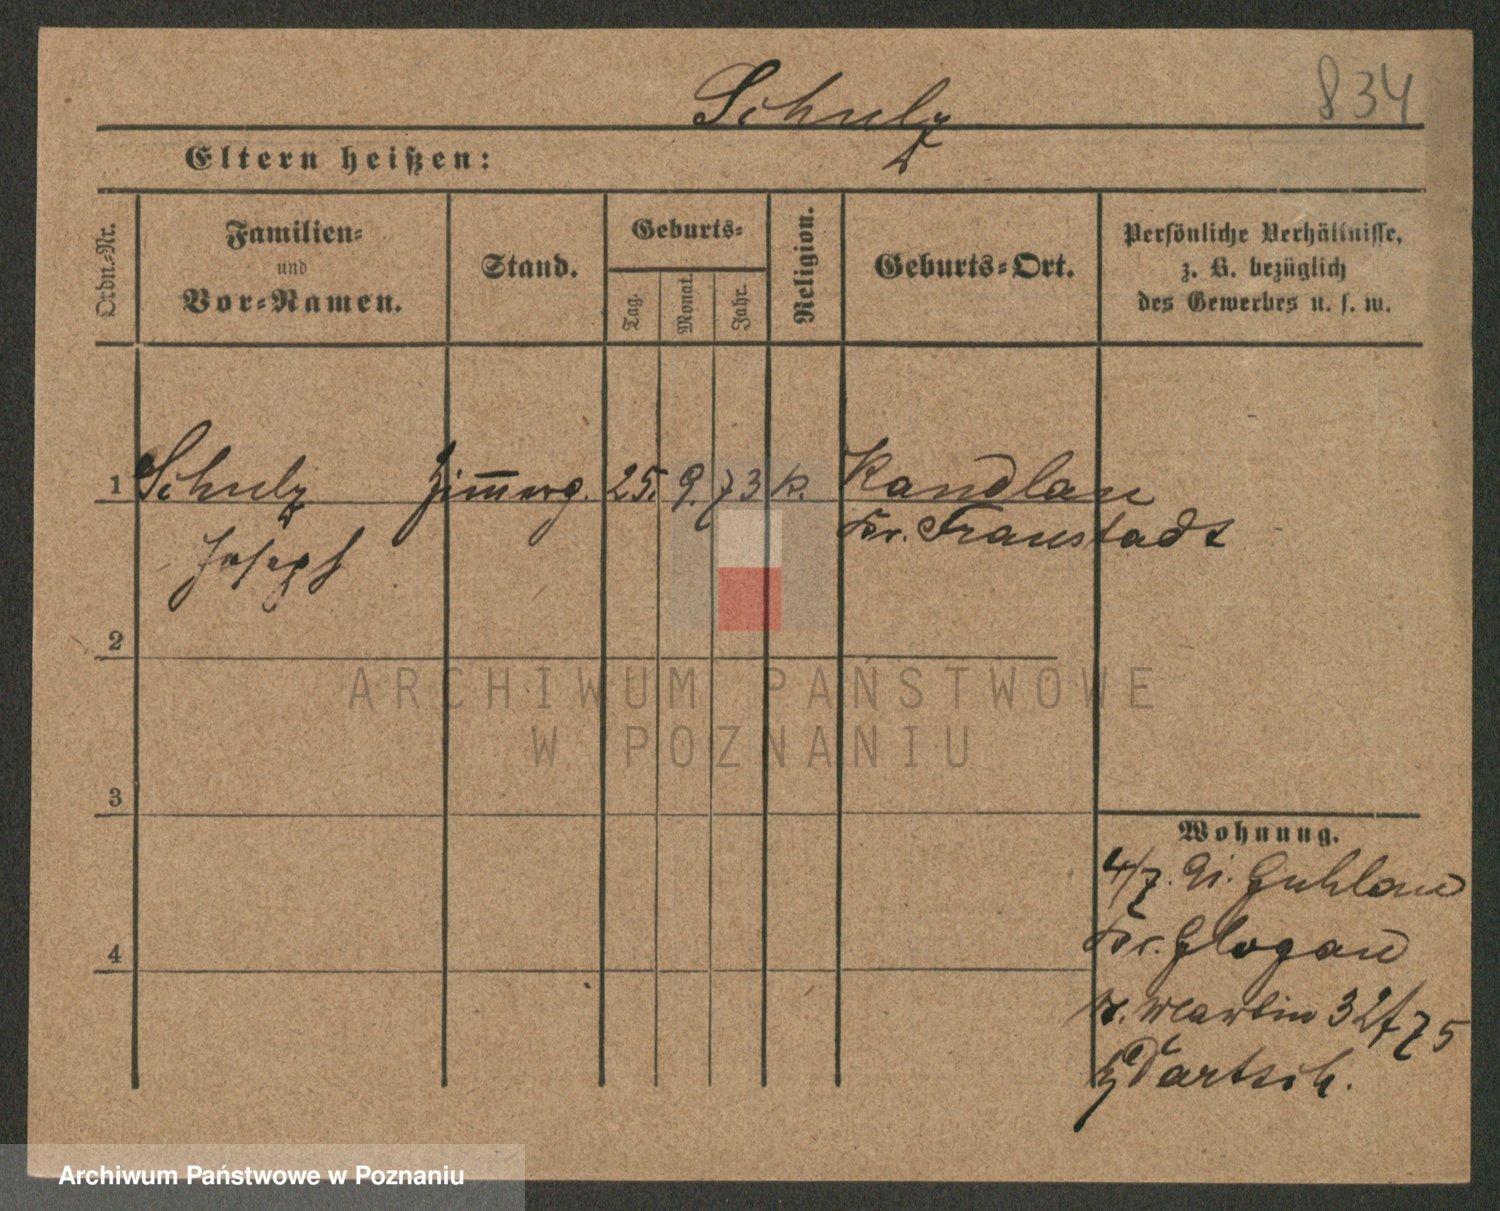 834
Schulz
Eltern heißen:
Ordn.-Nr.
Familien-
und
Vor-Namen.
Stand.
Geburts-
Tag.
Monat.
Jahr.
Religion.
Geburts-Ort.
Persönliche Verhältnisse,
z. B. bezüglich
des Gewerbes u. s. w.
1 Schulz Zimmerg. 25. 9. 73 k. Kandlau
Joseph Kr. Fraustadt
2
ARCHIWUM PAŃSTWOWE
W POZNANIU
3
Wohnung.
4/7. Guhlau
4
Kr. Glogau
Martin 32 / 75
Bartsch.
Archiwum Państwowe w Poznaniu